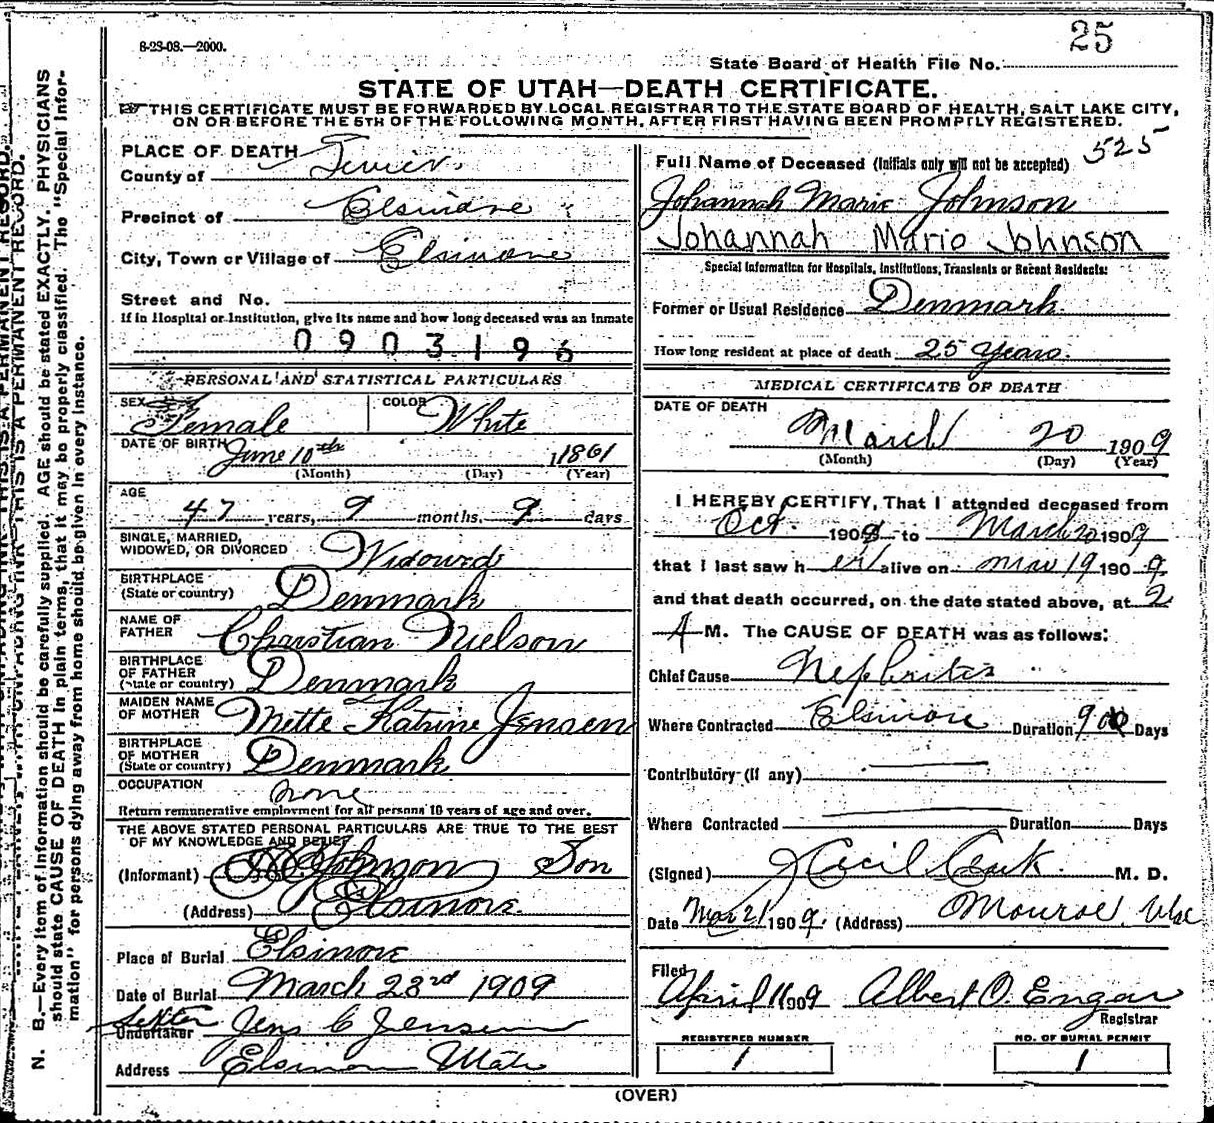 25
8-23-08.—2000.
State Board of Health File No.
STATE OF UTAH—DEATH CERTIFICATE.
THIS CERTIFICATE MUST BE FORWARDED BY LOCAL REGISTRAR TO THE STATE BOARD OF HEALTH, SALT LAKE CITY,
ON OR BEFORE THE 5TH OF THE FOLLOWING MONTH, AFTER FIRST HAVING BEEN PROMPTLY REGISTERED.
PLACE OF DEATH
County of Sevier
Precinct of Elsinore
City, Town or Village of Elsinore
Street and No.
If in Hospital or Institution, give its name and how long deceased was an inmate
0903196
PERSONAL AND STATISTICAL PARTICULARS
SEX Female COLOR White
DATE OF BIRTH June 10th 1861
(Month) (Day) (Year)
AGE
47 years, 9 months, 9 days
SINGLE, MARRIED,
WIDOWED, OR DIVORCED Widowed
BIRTHPLACE
(State or country) Denmark
NAME OF
FATHER Christian Nielson
BIRTHPLACE
OF FATHER
(State or country) Denmark
MAIDEN NAME
OF MOTHER Mette Katrine Jensen
BIRTHPLACE
OF MOTHER
(State or country) Denmark
OCCUPATION none
Return remunerative employment for all persons 10 years of age and over.
THE ABOVE STATED PERSONAL PARTICULARS ARE TRUE TO THE BEST
OF MY KNOWLEDGE AND BELIEF
(Informant) Johnson Son
(Address) Elsinore.
Place of Burial Elsinore
Date of Burial March 23rd 1909
Sexton
Undertaker Jens C Jensen
Address Elsinore Utah
525
Full Name of Deceased (Initials only will not be accepted)
Johannah Marie Johnson
Johannah Mario Johnson
Special Information for Hospitals, Institutions, Transients or Recent Residents:
Former or Usual Residence Denmark
How long resident at place of death 25 Years.
MEDICAL CERTIFICATE OF DEATH
DATE OF DEATH
March 20 1909
(Month) (Day) (Year)
I HEREBY CERTIFY, That I attended deceased from
Oct. 1908 to March 20 1909
that I last saw her alive on mar 19 1909
and that death occurred, on the date stated above, at 2
A M. The CAUSE OF DEATH was as follows:
Chief Cause Nephritis
Where Contracted Elsinore Duration 900 Days
Contributory (if any)
Where Contracted Duration Days
(Signed) J Cecil Clark M. D.
Date Mar 21 1909. (Address) Monroe, Utah
Filed
April 1 1909 Albert O. Engar
Registrar
REGISTERED NUMBER
1
NO. OF BURIAL PERMIT
1
(OVER)
N. B.—Every item of information should be carefully supplied. AGE should be stated EXACTLY. PHYSICIANS
should state CAUSE OF DEATH in plain terms, that it may be properly classified. The "Special Infor-
mation" for persons dying away from home should be given in every instance.
THIS IS A PERMANENT RECORD.
THIS IS A PERMANENT RECORD.